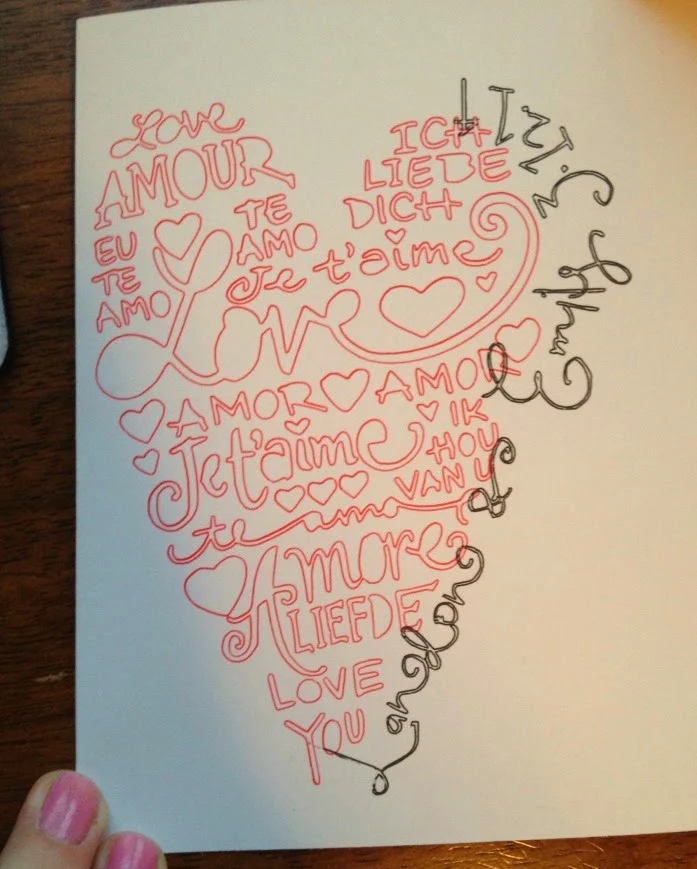 Love
AMOUR
EU
TE
AMO
TE
AMO
Je t'aime
ICH
LIEBE
DICH
Love
AMOR AMOR
Je t'aime
IK
HOU
VAN U
te amo
Amore
LIEFDE
LOVE
YOU